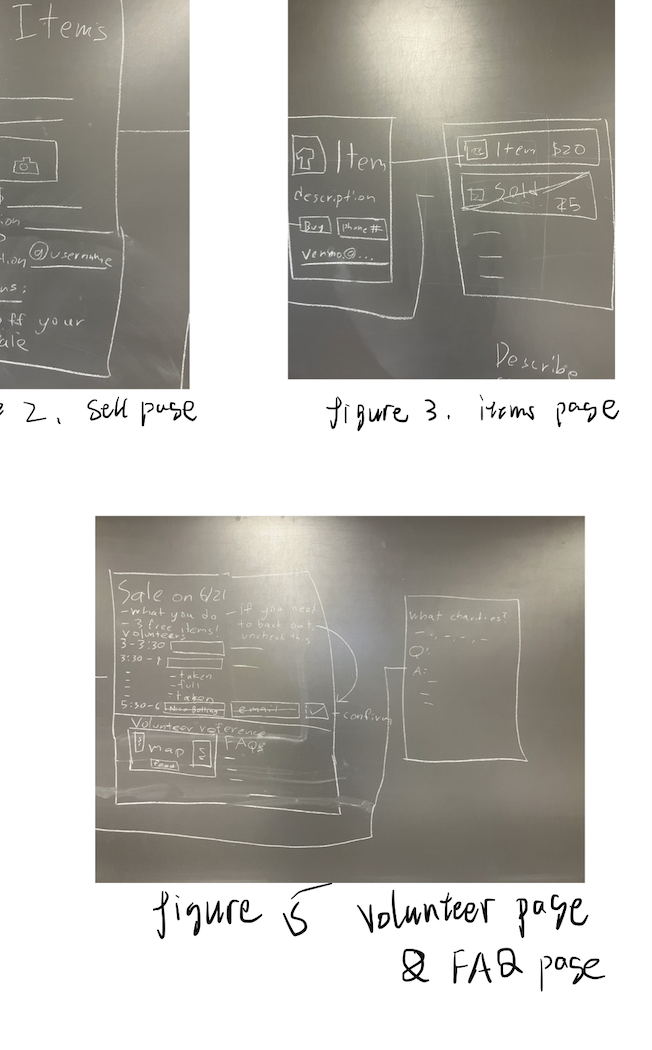 Items
@username
ns:
off your
ale
2. sell page
Item
description
Buy
phone #
Venmo@...
Item $20
Sold
$5
Describe
figure 3. items page
Sale on 6/21
-what you do
- 3 free items!
volunteers
3-3:30
3:30-4
-if you need
to back out
uncheck this
-taken
-full
-taken
5:30-6
email
-confirm
Volunteer reference
map
Food
FAQs
What charities?
Q:
A:
figure 5 volunteer page
& FAQ page